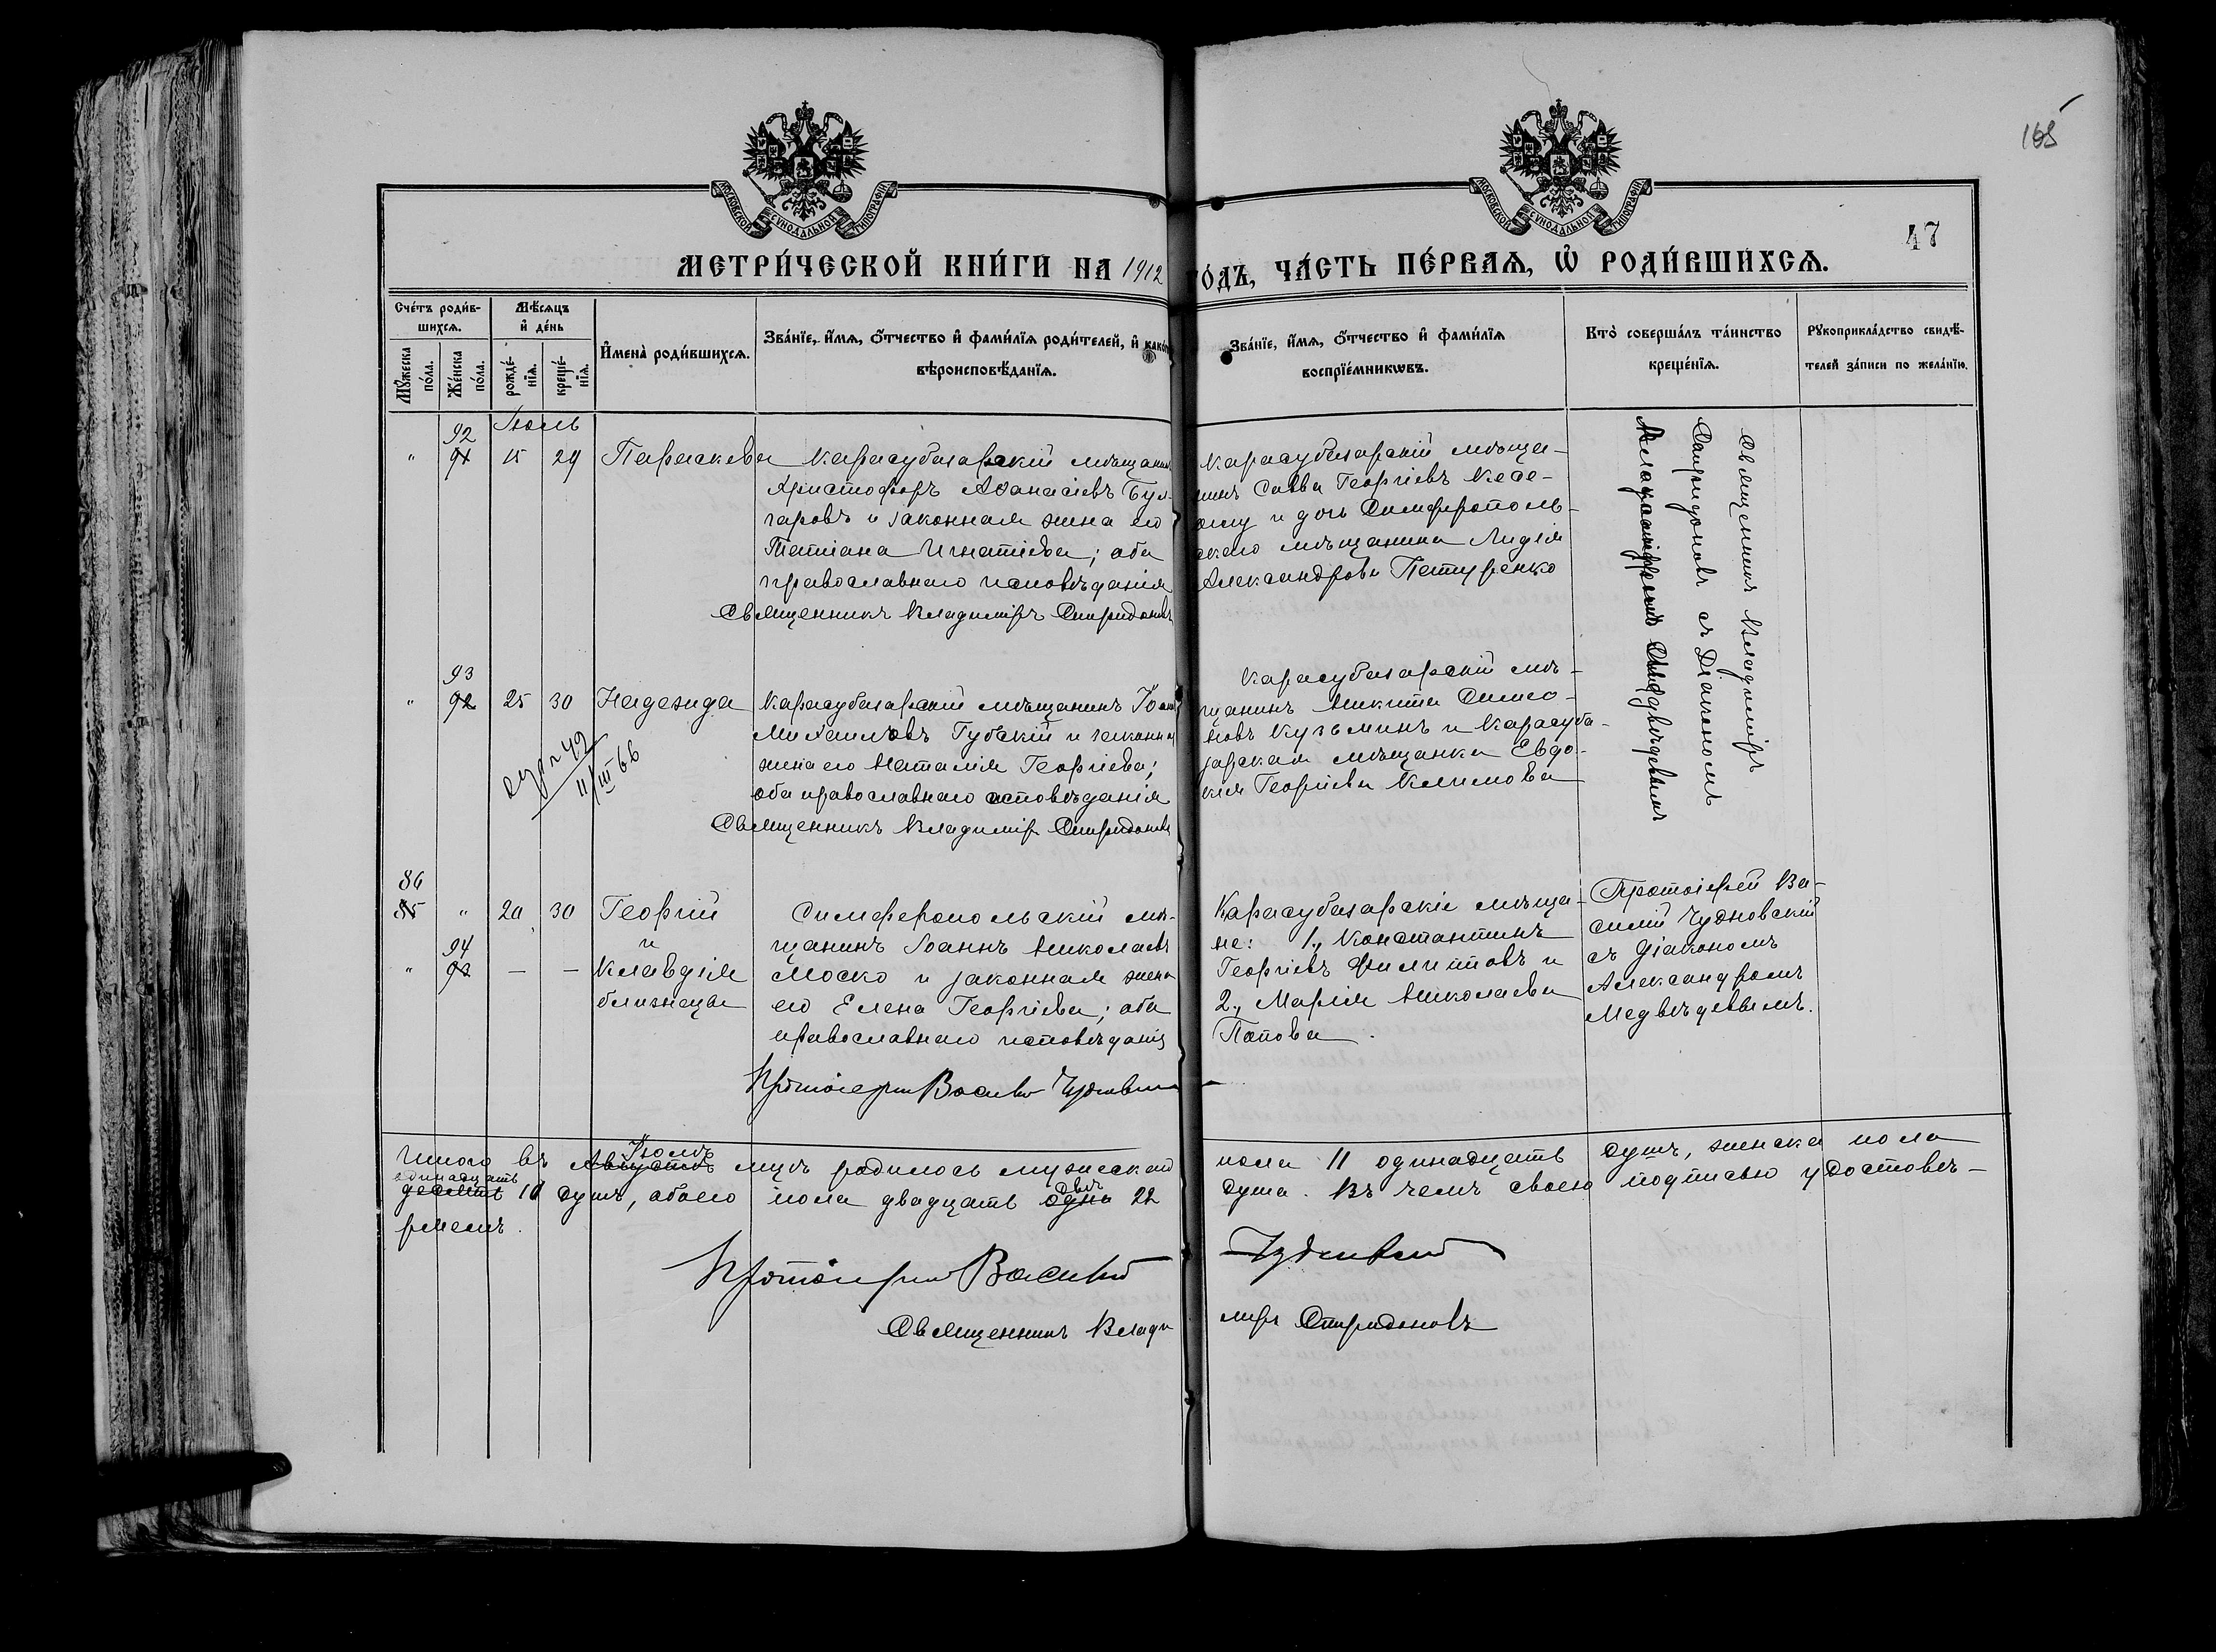 168
47
МОСКОВСКОЙ СѴНОДАЛЬНОЙ ТИПОГРАФІИ
МОСКОВСКОЙ СѴНОДАЛЬНОЙ ТИПОГРАФІИ
МЕТРИ́ЧЕСКОЙ КНИ́ГИ НА 1912 ГО́ДЪ, ЧА́СТЬ ПЕ́РВАѦ, Ѡ҆ РОДИ́ВШИХСѦ.
Сче́тъ роди́в-
шихсѧ.
Мꙋ́жеска по́ла.
Же́нска по́ла.
Мѣ́сѧцъ и҆ де́нь
рожде́-
нїѧ.
креще́-
нїѧ.
И҆мена̀ роди́вшихсѧ.
Зва́нїе, и҆́мѧ, ѻ҆́тчество и҆ фами́лїѧ роди́телей, и҆ како́гѡ
вѣроисповѣ́данїѧ.
Зва́нїе, и҆́мѧ, ѻ҆́тчество и҆ фами́лїѧ
воспрїе́мникѡвъ.
Кто̀ соверша́лъ та́инство
креще́нїѧ.
Рꙋкоприкла́дство свидѣ́-
телей за́писи по жела́нїю.
Іюль
92
91 15 29 Параскева
Карасубазарскій мѣщанинъ
Христофоръ Аѳанасіевъ Бул-
гаровъ и законная жена его
Татіана Игнатіева; оба
православнаго исповѣданія
Священникъ Владиміръ Спиридоновъ
Карасубазарскій мѣща-
нинъ Савва Георгіевъ Кесе-
и дочь Симферополь-
скаго мѣщанина Лидія
Александрова Петуренко
Священникъ Владиміръ
Спиридоновъ съ Діакономъ
Медвѣдевымъ
93
92 25 30 Надежда
Карасубазарскій мѣщанинъ Іоаннъ
Михаиловъ Губскій и законная
жена его Наталія Георгіева;
оба православнаго исповѣданія
Священникъ Владиміръ Спиридоновъ
Карасубазарскій мѣ-
щанинъ Никита Симео-
новъ Кузьминъ и Карасуба-
зарская мѣщанка Евдо-
кія Георгіева Климова
11/III 66
86
85 " 20 30 Георгій
и
94
" 93 — — Клавдія
близнецы
Симферопольскій мѣ-
щанинъ Іоаннъ Николаевъ
Моско и законная жена
его Елена Георгіева; оба
православнаго исповѣданія
Протоіерей Василій Чудновскій
Карасубазарскіе мѣща-
не: 1., Константинъ
Георгіевъ Филипповъ и
2., Марія Николаева
Попова.
Протоіерей Ва-
силій Чудновскій
съ Діакономъ
Александромъ
Медвѣдевымъ.
Іюль
Итого въ Августѣ мцѣ родилось мужескаго пола 11 одинадцать душъ, женска пола
одинадцать
десять 11 душъ, обоего пола двадцать одна двѣ 22 душа. Въ чемъ своею подписью удостовѣ-
ряемъ.
Протоіерей Василій Чудновскій
Священникъ Владиміръ Спиридоновъ